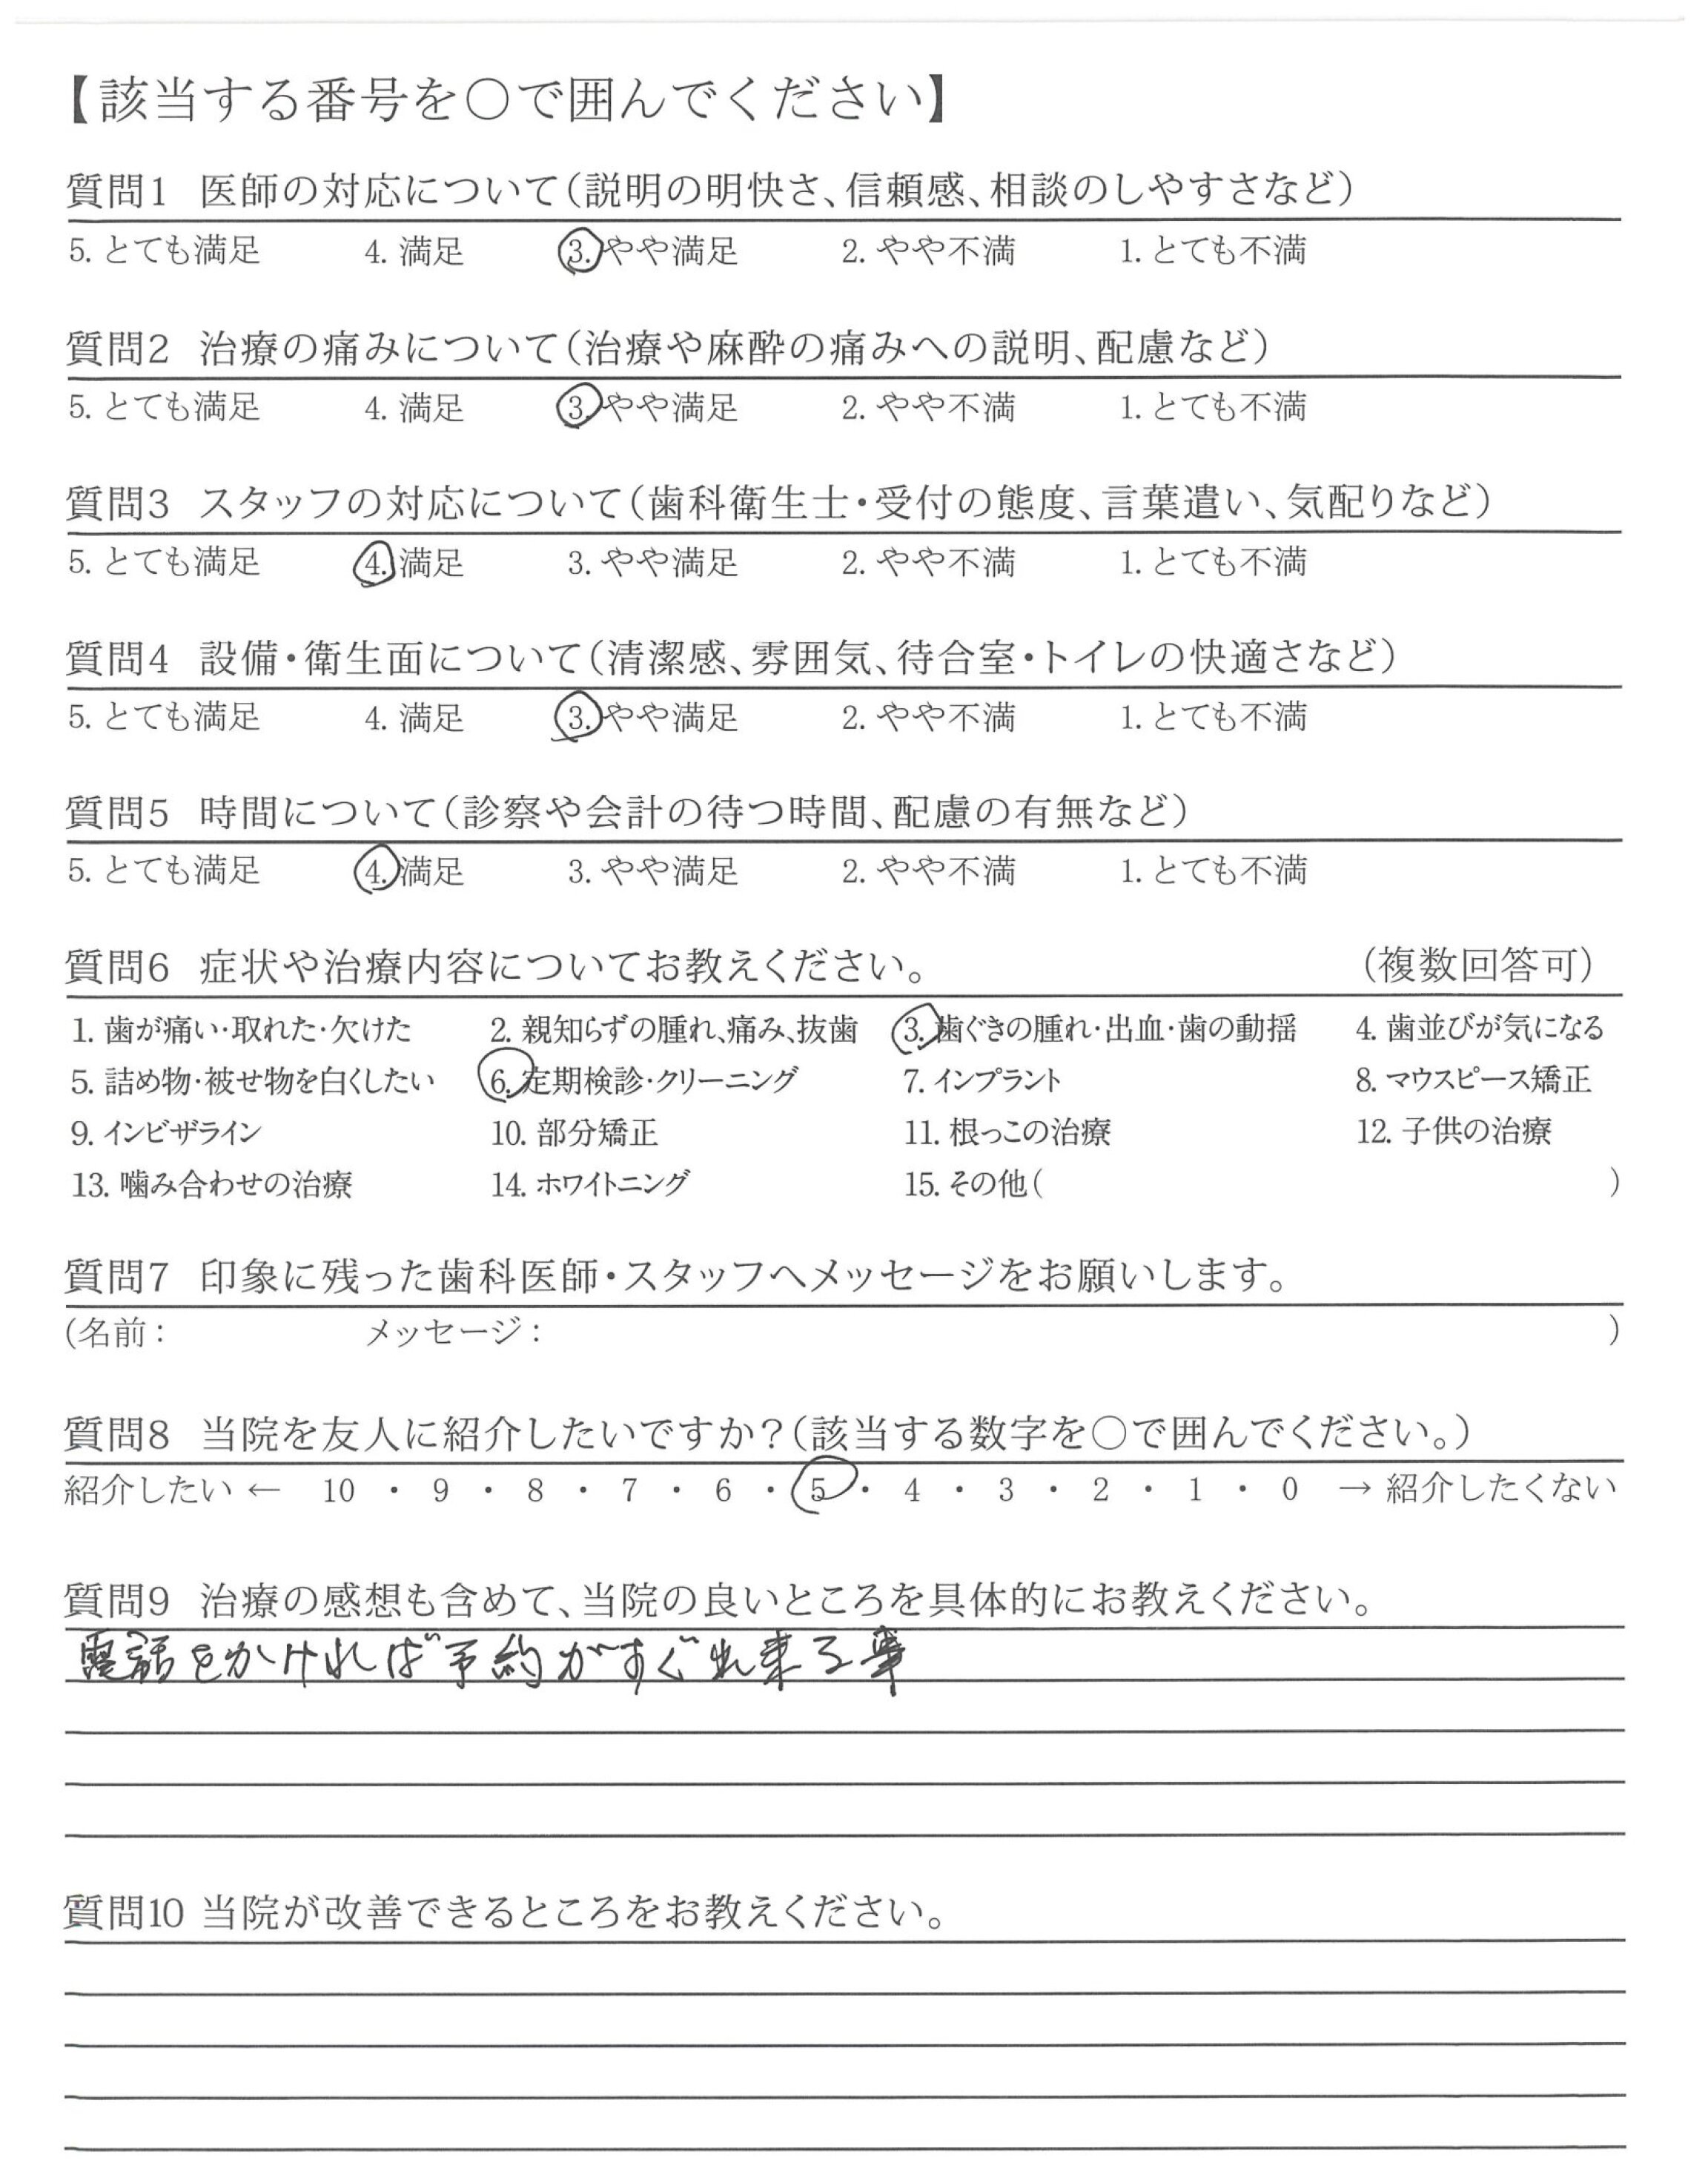 【該当する番号を〇で囲んでください】
質問1 医師の対応について(説明の明快さ、信頼感、相談のしやすさなど)
5. とても満足 4. 満足 3. やや満足 2. やや不満 1. とても不満
質問2 治療の痛みについて(治療や麻酔の痛みへの説明、配慮など)
5. とても満足 4. 満足 3. やや満足 2. やや不満 1. とても不満
質問3 スタッフの対応について(歯科衛生士・受付の態度、言葉遣い、気配りなど)
5. とても満足 4. 満足 3. やや満足 2. やや不満 1. とても不満
質問4 設備・衛生面について(清潔感、雰囲気、待合室・トイレの快適さなど)
5. とても満足 4. 満足 3. やや満足 2. やや不満 1. とても不満
質問5 時間について(診察や会計の待つ時間、配慮の有無など)
5. とても満足 4. 満足 3. やや満足 2. やや不満 1. とても不満
質問6 症状や治療内容についてお教えください。 (複数回答可)
1. 歯が痛い・取れた・欠けた 2. 親知らずの腫れ、痛み、抜歯 3. 歯ぐきの腫れ・出血・歯の動揺 4. 歯並びが気になる
5. 詰め物・被せ物を白くしたい 6. 定期検診・クリーニング 7. インプラント 8. マウスピース矯正
9. インビザライン 10. 部分矯正 11. 根っこの治療 12. 子供の治療
13. 噛み合わせの治療 14. ホワイトニング 15. その他( )
質問7 印象に残った歯科医師・スタッフへメッセージをお願いします。
(名前: メッセージ: )
質問8 当院を友人に紹介したいですか?(該当する数字を〇で囲んでください。)
紹介したい ← 10 ・ 9 ・ 8 ・ 7 ・ 6 ・ 5 ・ 4 ・ 3 ・ 2 ・ 1 ・ 0 → 紹介したくない
質問9 治療の感想も含めて、当院の良いところを具体的にお教えください。
電話をかければ予約がすぐ出来る事
質問10 当院が改善できるところをお教えください。